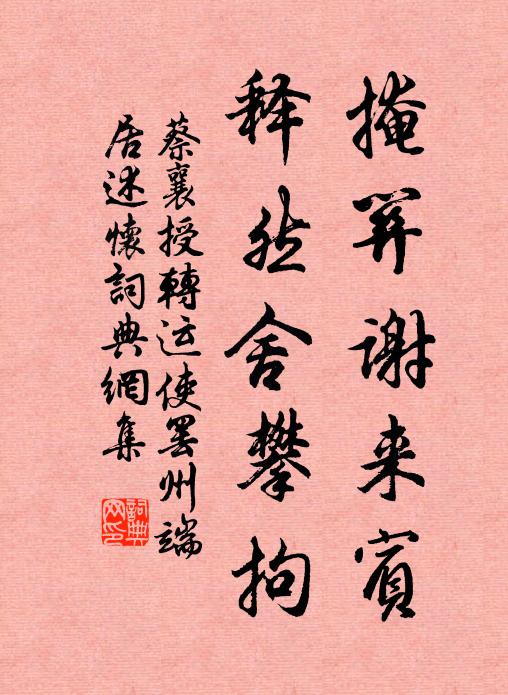 掩关谢来宾
释然舍攀拘
蔡襄授轉运使罢州端
居述懷詞典網集
詞典网印